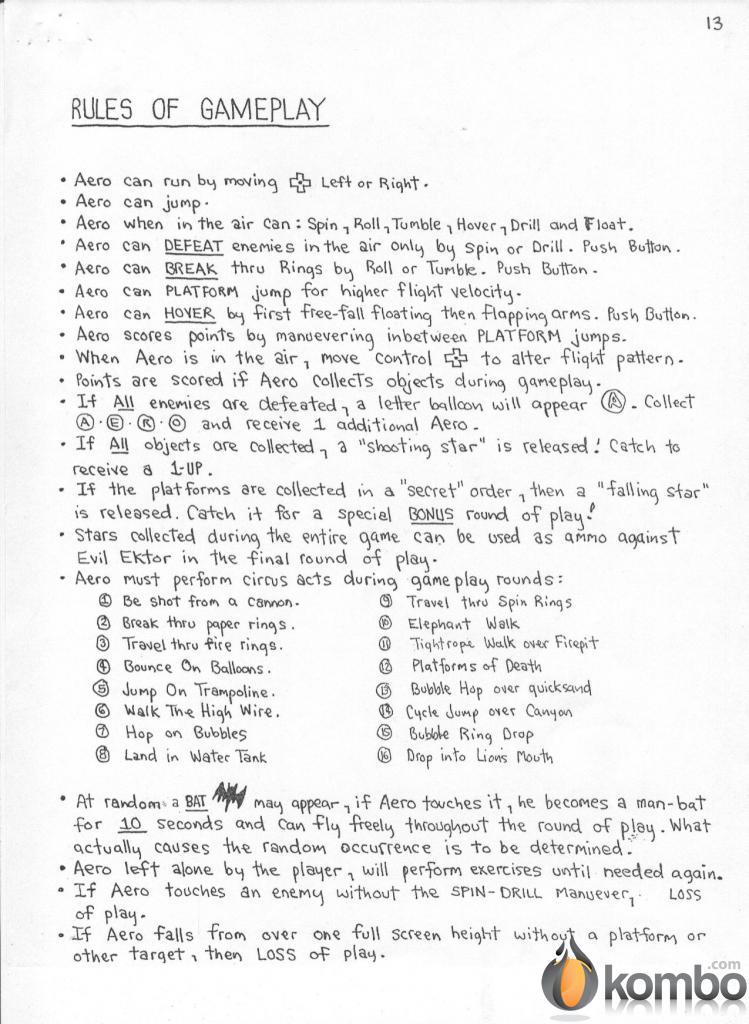 13
RULES OF GAMEPLAY
• Aero can run by moving Left or Right.
• Aero can jump.
• Aero when in the air can: Spin, Roll, Tumble, Hover, Drill and Float.
• Aero can DEFEAT enemies in the air only by Spin or Drill. Push Button.
• Aero can BREAK thru Rings by Roll or Tumble. Push Button.
• Aero can PLATFORM jump for higher flight velocity.
• Aero can HOVER by first free-fall floating then flapping arms. Push Button.
• Aero scores points by manuevering inbetween PLATFORM jumps.
• When Aero is in the air, move control to alter flight pattern.
• Points are scored if Aero collects objects during gameplay.
• If All enemies are defeated, a letter balloon will appear Ⓐ. Collect
Ⓐ·Ⓔ·Ⓡ·Ⓞ and receive 1 additional Aero.
• If All objects are collected, a "shooting star" is released! Catch to
receive a 1-UP.
• If the platforms are collected in a "secret" order, then a "falling star"
is released. Catch it for a special BONUS round of play!
• Stars collected during the entire game can be used as ammo against
Evil Ektor in the final round of play.
• Aero must perform circus acts during gameplay rounds:
① Be shot from a cannon.
② Break thru paper rings.
③ Travel thru fire rings.
④ Bounce On Balloons.
⑤ Jump On Trampoline.
⑥ Walk The High Wire.
⑦ Hop on Bubbles
⑧ Land in Water Tank
⑨ Travel thru Spin Rings
⑩ Elephant Walk
⑪ Tightrope Walk over Firepit
⑫ Platforms of Death
⑬ Bubble Hop over quicksand
⑭ Cycle Jump over Canyon
⑮ Bubble Ring Drop
⑯ Drop into Lion's Mouth
• At random a BAT may appear, if Aero touches it, he becomes a man-bat
for 10 seconds and can fly freely throughout the round of play. What
actually causes the random occurrence is to be determined.
• Aero left alone by the player, will perform exercises until needed again.
• If Aero touches an enemy without the SPIN-DRILL Manuever, LOSS
of play.
• If Aero falls from over one full screen height without a platform or
other target, then LOSS of play.
kombo.com